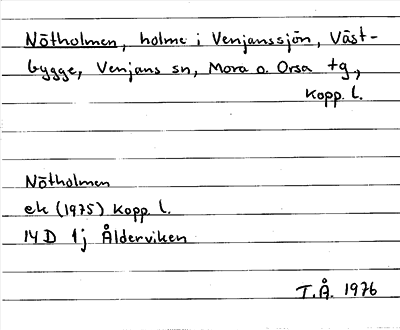 Nötholmen, holme i Venjanssjön, Väst-
bygge, Venjans sn, Mora o. Orsa tg,
Kopp. l.
Nötholmen
ek (1975) Kopp. l.
14 D 1j Ålderviken
T.Å. 1976